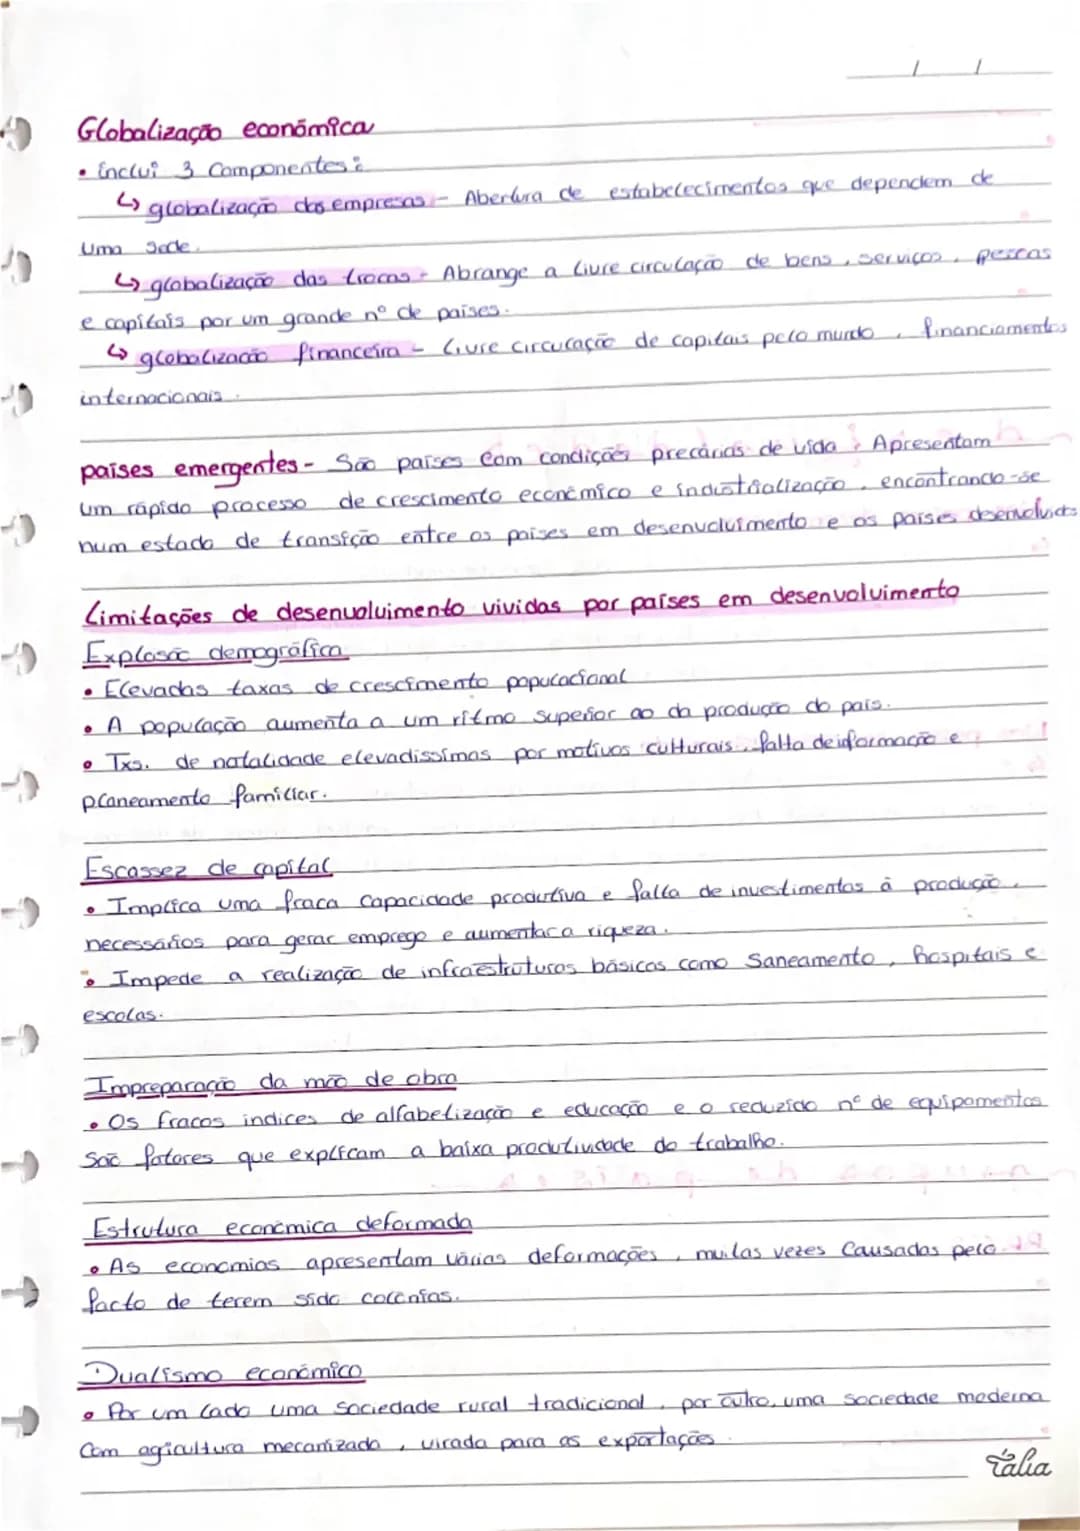 / /
Globalização económica
• Inclui 3 Componentes:
↳ globalização das empresas - Abertura de estabelecimentos que dependem de
uma sede.
↳ globalização das trocas - Abrange a livre circulação de bens, serviços, pescas
e capitais por um grande nº de países.
↳ globalização financeira - Livre circulação de capitais pelo mundo, financiamentos
internacionais.
países emergentes - São países com condições precárias de vida. Apresentam
um rápido processo de crescimento económico e industrialização, encontrando-se
num estado de transição entre os países em desenvolvimento e os países desenvolvidos
Limitações de desenvolvimento vividas por países em desenvolvimento
Explosão demográfica
• Elevadas taxas de crescimento populacional
• A população aumenta a um ritmo superior ao da produção do país.
• Txs. de natalidade elevadissimas por motivos culturais, falta de informação e
planeamento familiar.
Escassez de capital
• Implica uma fraca capacidade produtiva e falta de investimentos à produção,
necessários para gerar emprego e aumentar a riqueza.
• Impede a realização de infraestruturas básicas como Saneamento, Hospitais e
escolas.
Impreparação da mão de obra
• Os fracos indices de alfabetização e educação e o reduzido nº de equipamentos
são fatores que explicam a baixa produtividade do trabalho.
Estrutura económica deformada
• As economias apresentam várias deformações, muitas vezes causadas pelo
facto de terem sido colónias.
Dualismo económico
• Por um lado uma sociedade rural tradicional, por outro, uma sociedade moderna
com agricultura mecanizada, virada para as exportações.
Tália